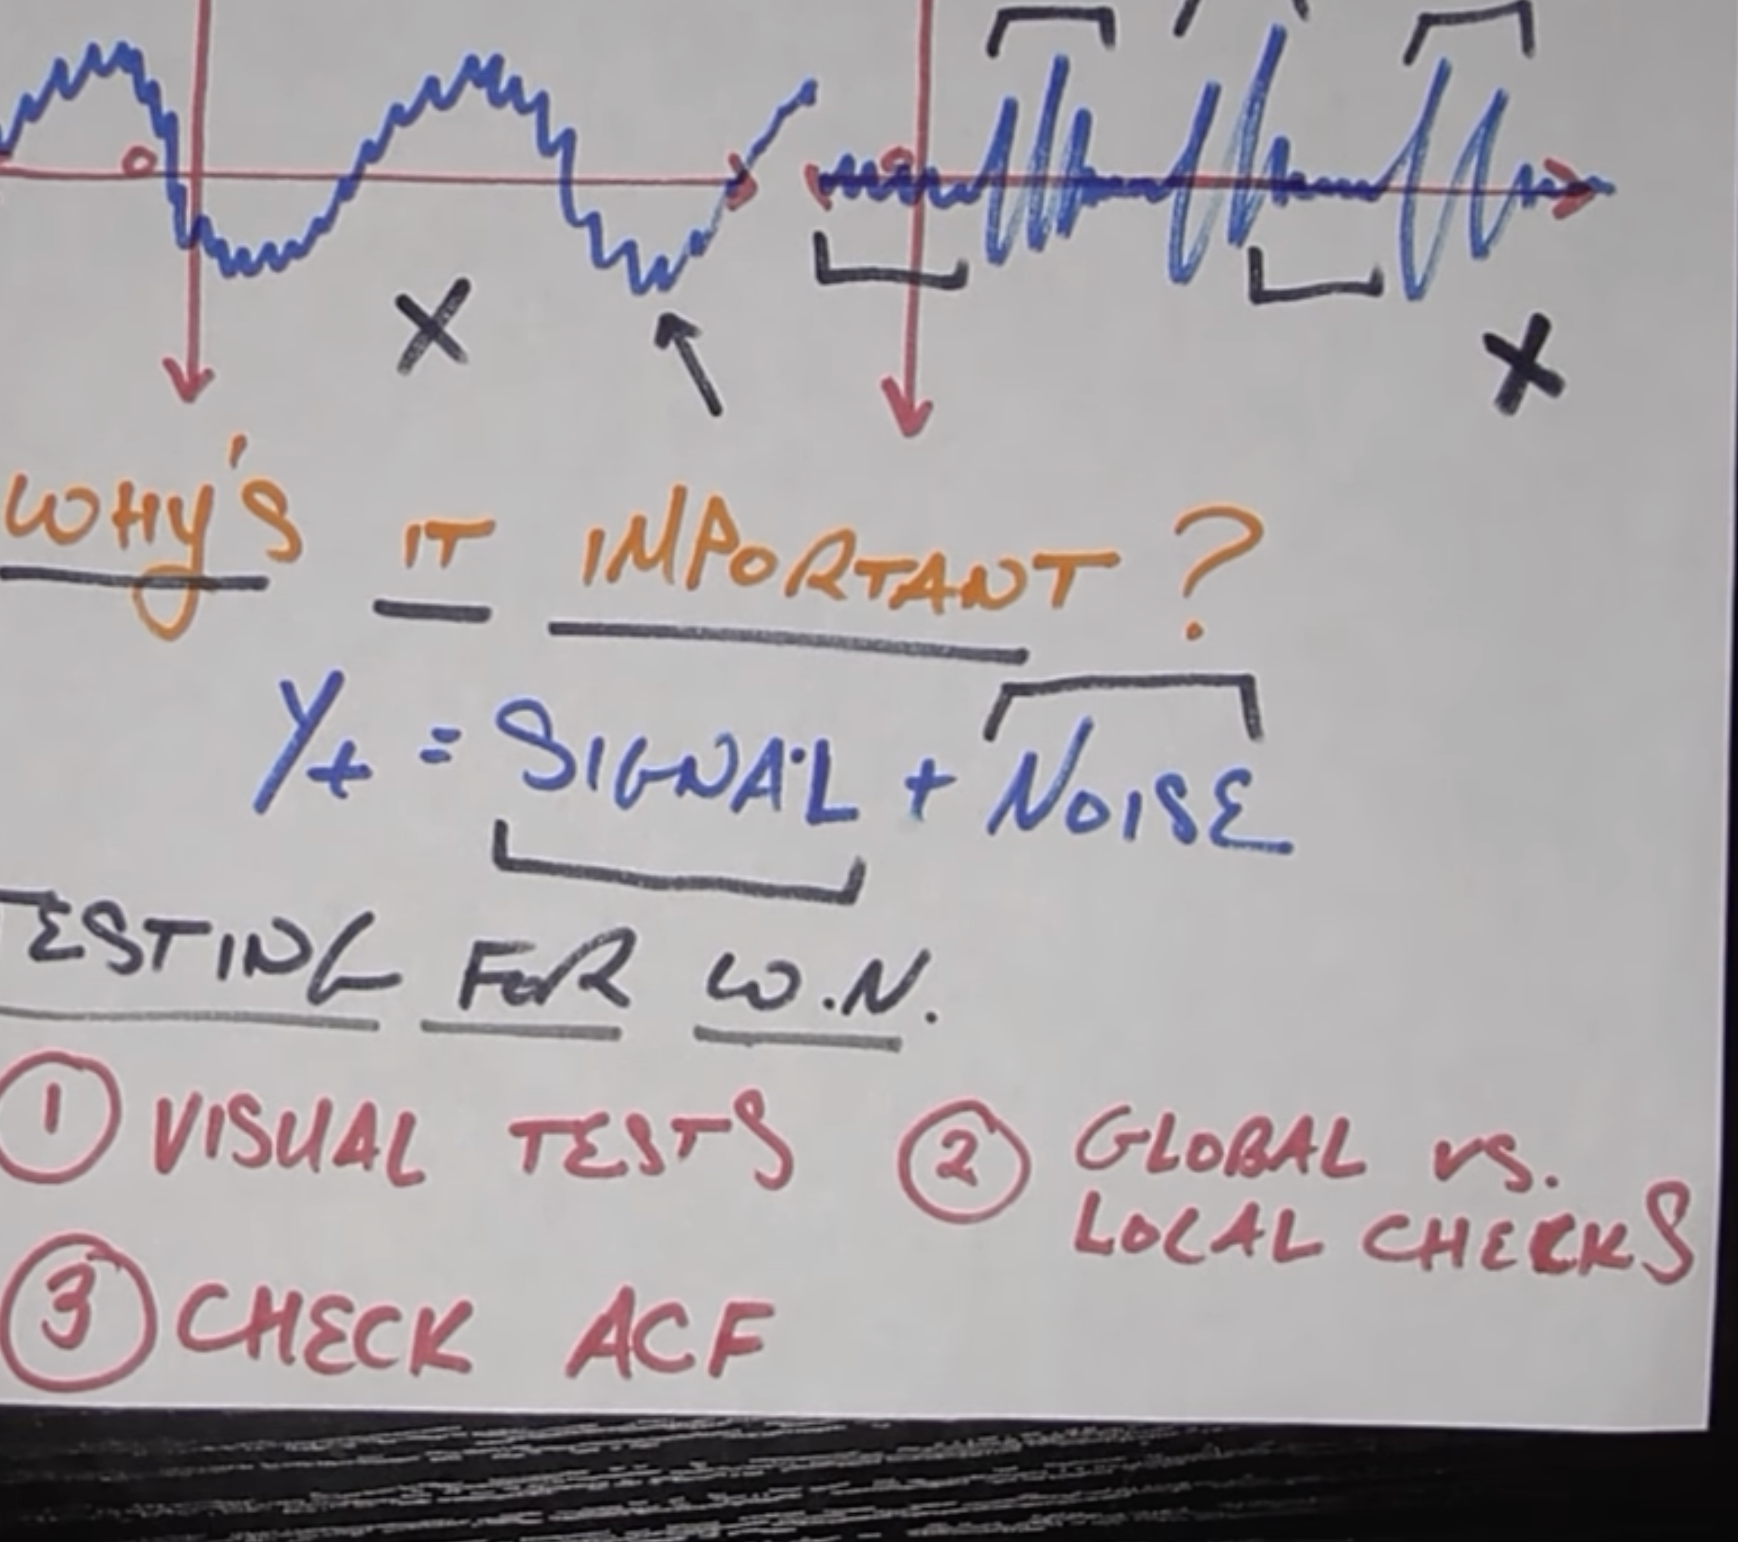 0 0
X
X
WHY'S IT IMPORTANT?
Yt = SIGNAL + NOISE
TESTING FOR W.N.
1 VISUAL TESTS
2 GLOBAL vs.
LOCAL CHECKS
3 CHECK ACF